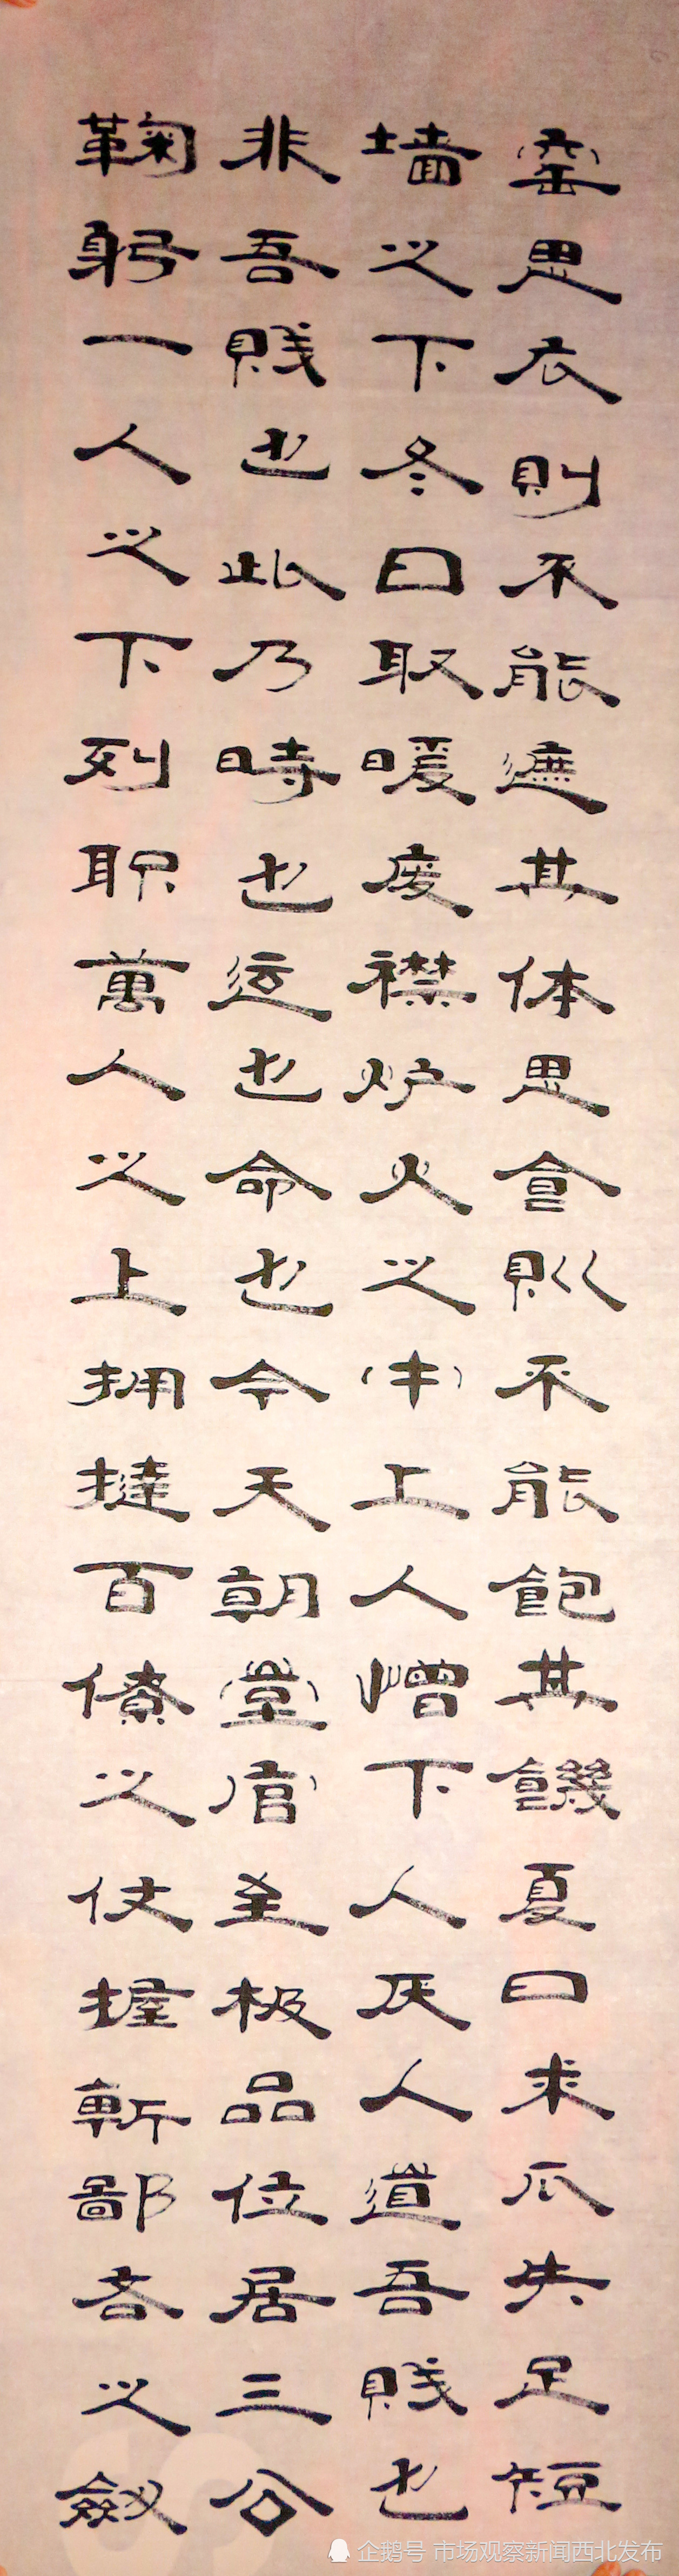 窑思衣則不能遮其体思食則不能飽其饑夏日求瓜失足短
墙之下冬日取暖废襟炉火之中上人憎下人厌人道吾贱也
非吾贱也此乃時也运也命也今天朝堂官至极品位居三公
鞠躬一人之下列职萬人之上拥挞百僚之仗握斬鄙吝之劍
企鹅号 市场观察新闻西北发布